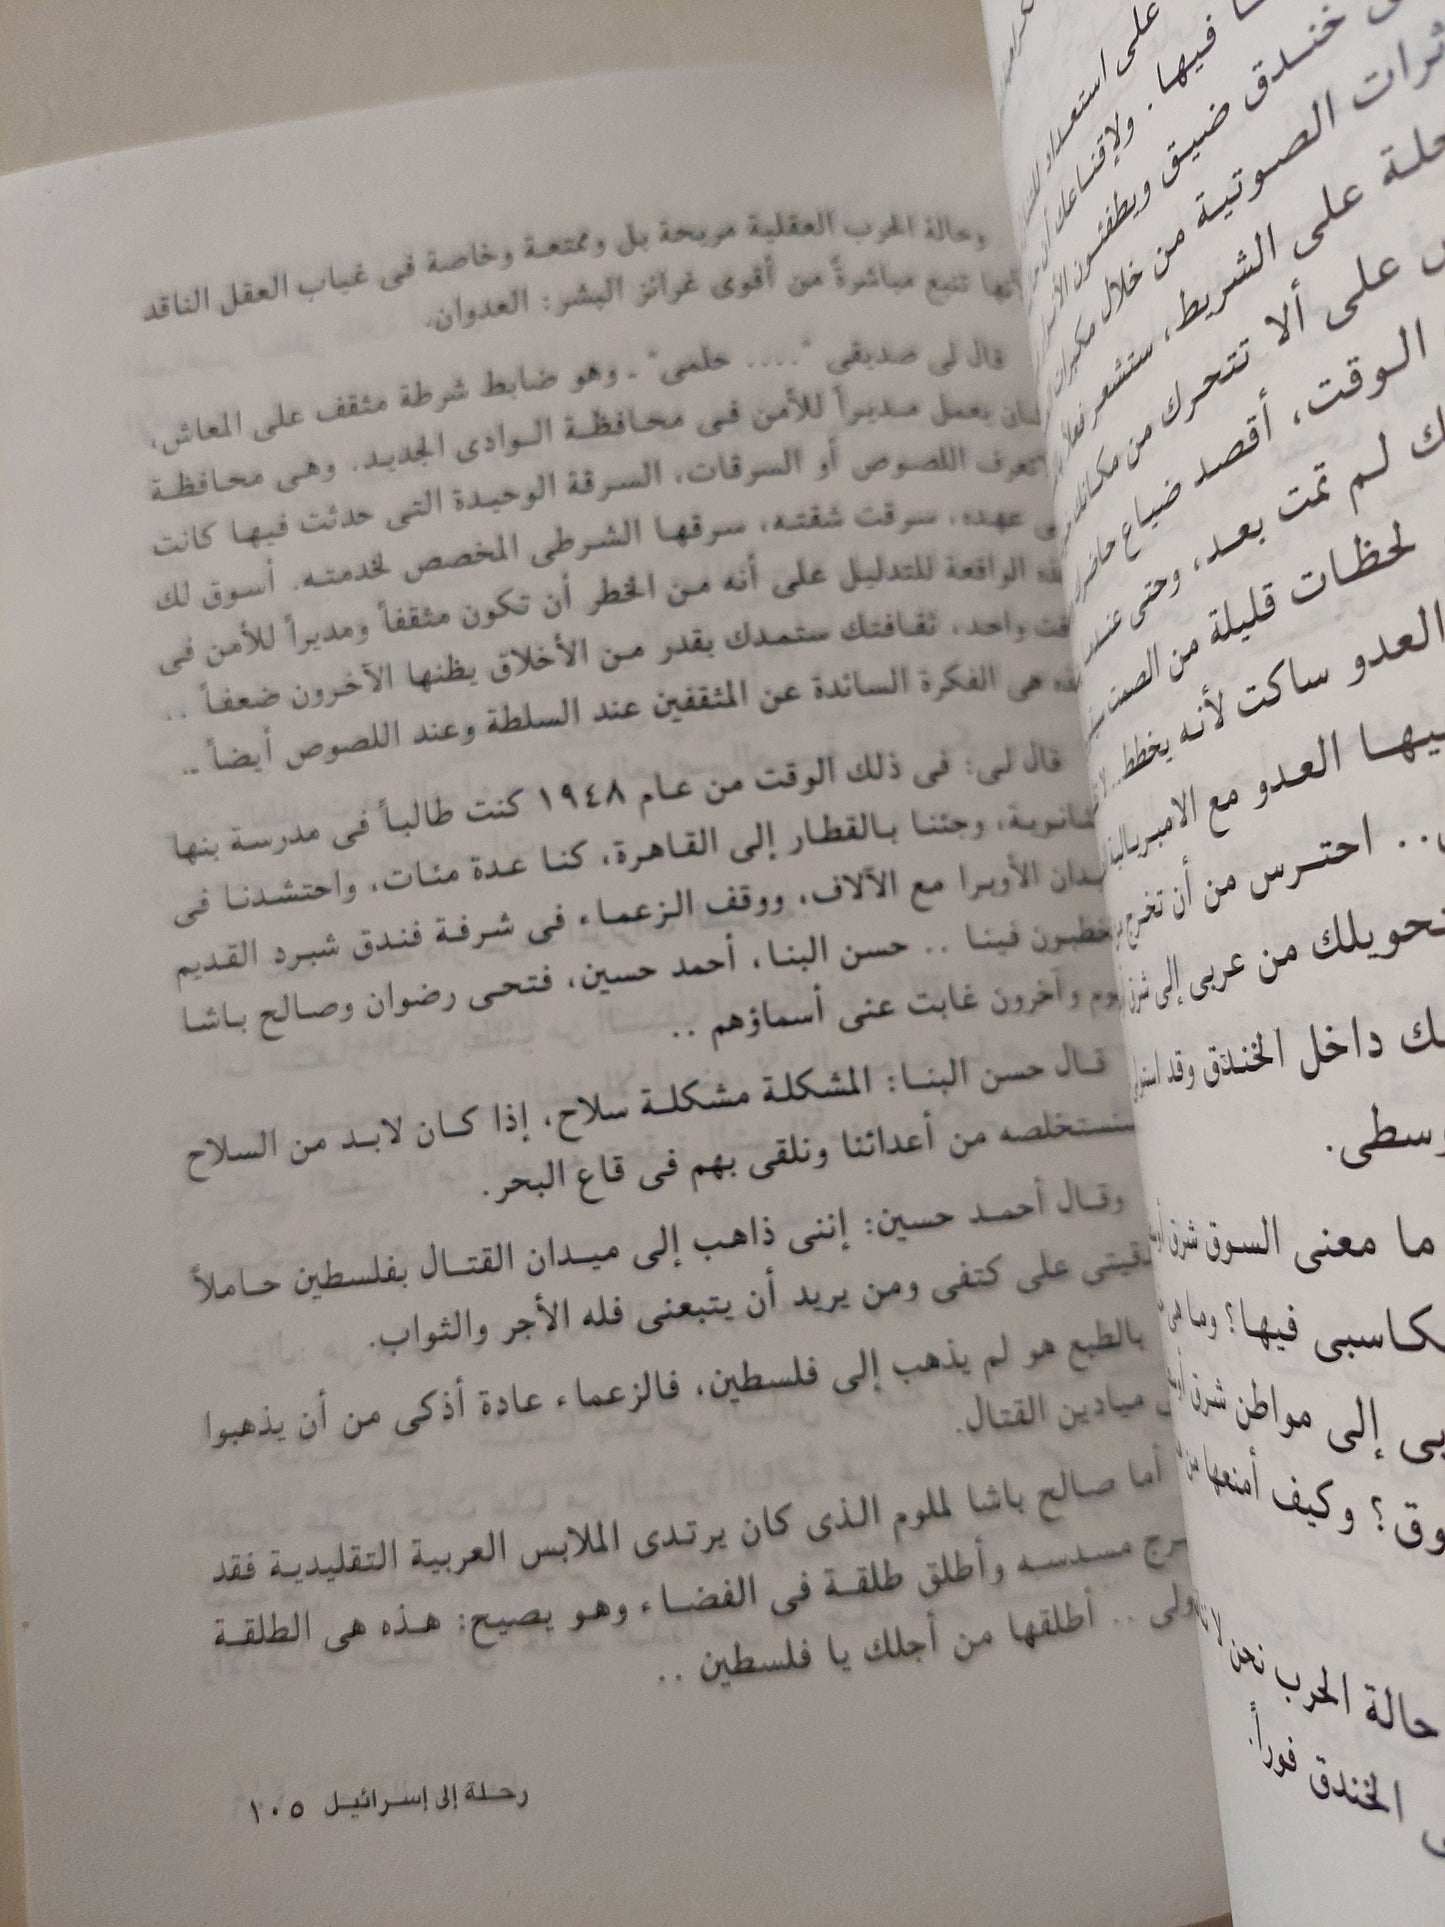 وحالة الحرب العقلية مريحة بل وممتعة وخاصة فى غياب العقل الناقد
تنبع مباشرةً من أقوى غرائز البشر: العدوان.
قال لى صديقى ".... حلمى" ـ وهو ضابط شرطة مثقف على المعاش،
يعمل مديراً للأمن فى محافظة الوادى الجديد. وهى محافظة
تعرف اللصوص أو السرقات، السرقة الوحيدة التى حدثت فيها كانت
عهده، سرقت شقته، سرقها الشرطى المخصص لخدمته. أسوق لك
الواقعة للتدليل على أنه من الخطر أن تكون مثقفاً ومديراً للأمن فى
واحد، ثقافتك ستمدك بقدر من الأخلاق يظنها الآخرون ضعفاً ..
هى الفكرة السائدة عن المثقفين عند السلطة وعند اللصوص أيضاً ..
قال لى: فى ذلك الوقت من عام ١٩٤٨ كنت طالباً فى مدرسة بنها
وجئنا بالقطار إلى القاهرة، كنا عدة مئات، واحتشدنا فى
الأوبرا مع الآلاف، ووقف الزعماء فى شرفة فندق شبرد القديم
فينا .. حسن البنا، أحمد حسين، فتحى رضوان وصالح باشا
وآخرون غابت عنى أسماؤهم ..
قال حسن البنا: المشكلة مشكلة سلاح، إذا كان لابد من السلاح
سنستخلصه من أعدائنا ونلقى بهم فى قاع البحر.
وقال أحمد حسين: إننى ذاهب إلى ميدان القتال بفلسطين حاملاً
على كتفى ومن يريد أن يتبعنى فله الأجر والثواب.
بالطبع هو لم يذهب إلى فلسطين، فالزعماء عادة أذكى من أن يذهبوا
ميادين القتال.
أما صالح باشا لملوم الذى كان يرتدى الملابس العربية التقليدية فقد
مسدسه وأطلق طلقة فى الفضاء وهو يصيح: هذه هى الطلقة
.. أطلقها من أجلك يا فلسطين ..
رحلة إلى إسرائيل ١٠٥
على استعداد
فيها. ولإقناعك
خندق ضيق ويطفئون
الصوتية من خلال مكبرات
على الشريط، ستشعر فعلاً
على ألا تتحرك من مكانك
الوقت، أقصد ضياع
لم تمت بعد، وحتى
لحظات قليلة من الصمت
العدو ساكت لأنه يخطط..
العدو مع الامبريالية
.. احترس من أن تخرج
تحويلك من عربى إلى شرق
داخل الخندق وقد
ما معنى السوق شرق
فيها؟ وما هى
إلى مواطن شرق
وكيف أمنعها من
حالة الحرب نحن لا
الخندق فوراً.